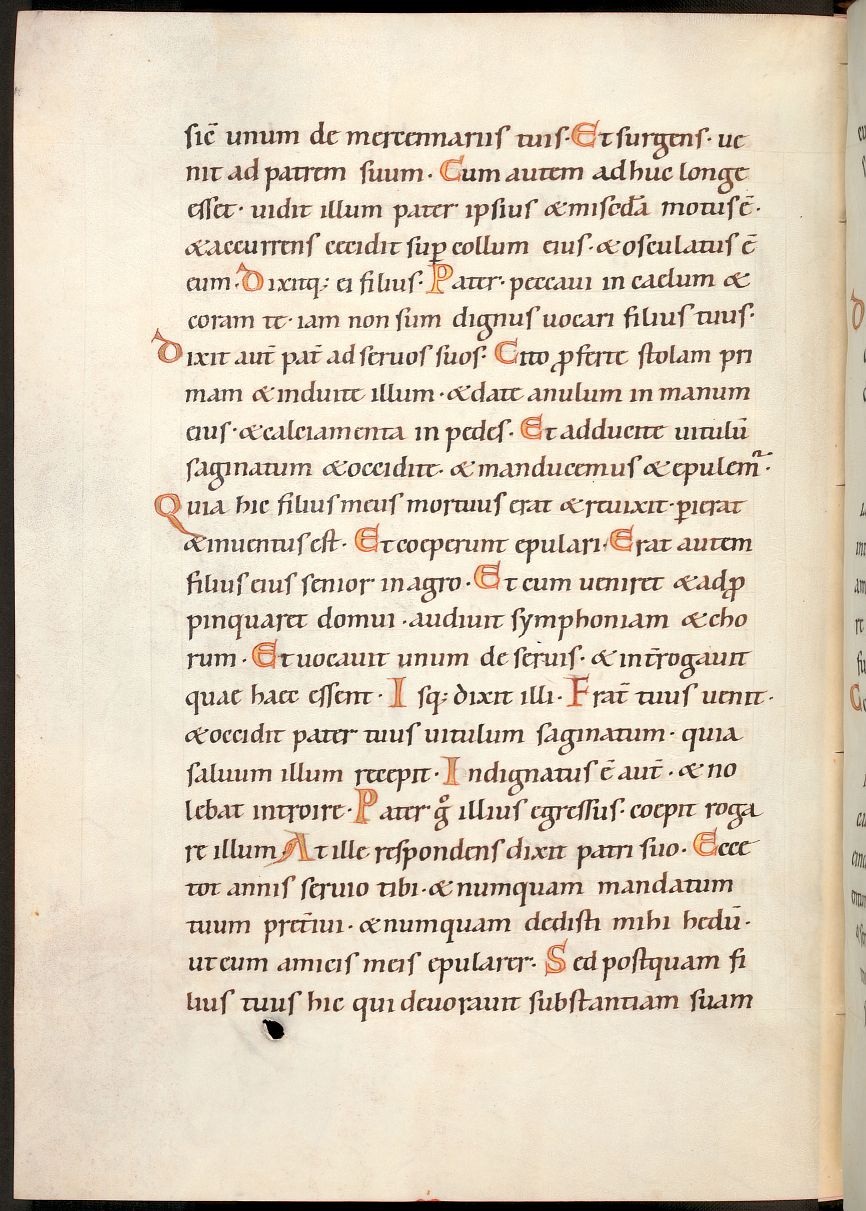 sic̄ unum de mercennariis tuis· Et surgens· ue
nit ad patrem suum· Cum autem adhuc longe
esset· uidit illum pater ipsius & misc̄dā motus ē·
& accurrens cecidit suꝑ collum eius· & osculatus ē
eum· Dixitq; ei filius· Pater· peccaui in caelum &
coram te· iam non sum dignus uocari filius tuus·
Dixit aut̄ pat̄ ad seruos suos· Cito ꝓferte stolam pri
mam & induite illum· & date anulum in manum
eius· & calciamenta in pedes· Et adducite uitulū
saginatum & occidite· & manducemus & epulem̃·
Quia hic filius meus mortuus erat & reuixit· ꝑierat
& inuentus est· Et coeperunt epulari· Erat autem
filius eius senior in agro· Et cum ueniret & adꝓ
pinquaret domui· audiuit symphoniam & cho
rum· Et uocauit unum de seruis· & int̄rogauit
quae haec essent· Isq; dixit illi· Frat̄ tuus uenit·
& occidit pater tuus uitulum saginatum· quia
saluum illum recepit· Indignatus ē aut̄· & no
lebat introire· Pater gͦ illius egressus· coepit roga
re illum At ille respondens dixit patri suo· Ecce
tot annis seruio tibi· & numquam mandatum
tuum pret̄iui· & numquam dedisti mihi hedū·
ut cum amicis meis epularer· Sed postquam fi
lius tuus hic qui deuorauit substantiam suam